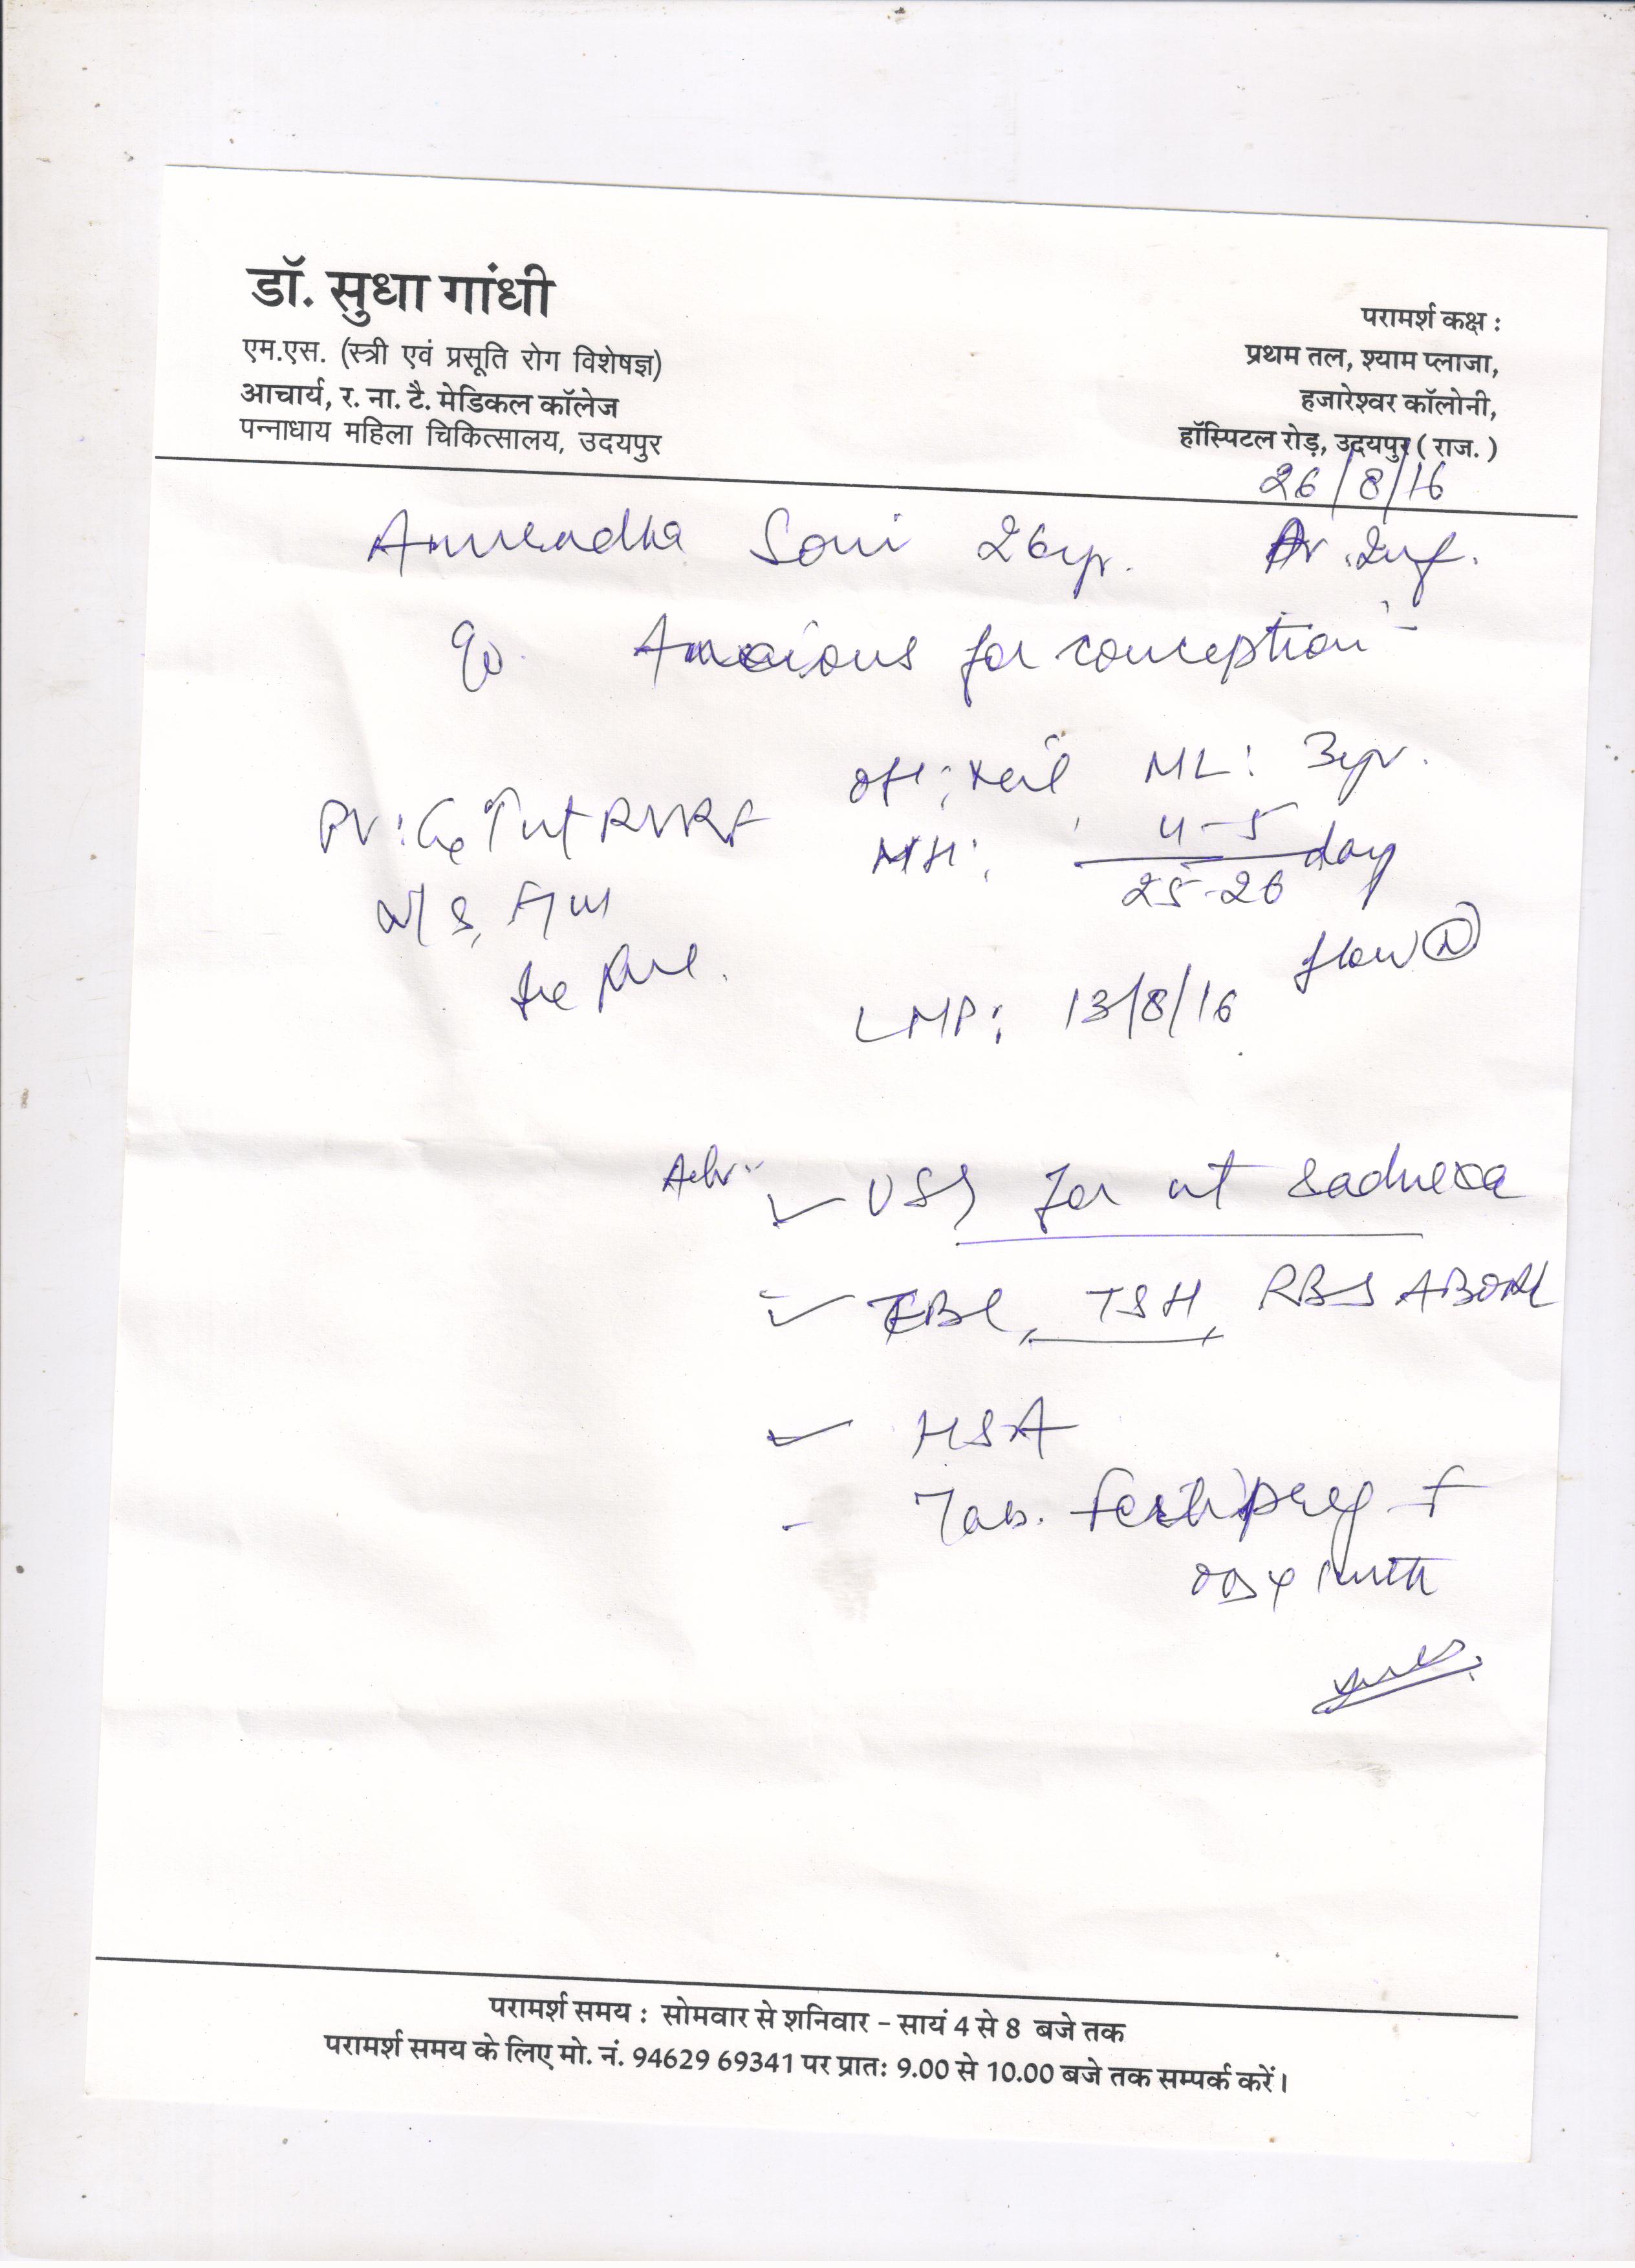 डॉ. सुधा गांधी
एम.एस. (स्त्री एवं प्रसूति रोग विशेषज्ञ)
आचार्य, र. ना. टै. मेडिकल कॉलेज
पन्नाधाय महिला चिकित्सालय, उदयपुर
परामर्श कक्ष :
प्रथम तल, श्याम प्लाजा,
हजारेश्वर कॉलोनी,
हॉस्पिटल रोड़, उदयपुर ( राज. )
26/8/16
Anuradha Soni 26yr. Pr. Inf.
Anxious for conception
OH: Nil ML: 3yr.
MH: 4-5 / 25-26 day
flow N
LMP: 13/8/16
PV: Cx Ut RVRF
N/S, F/M
Adv:
USG for ut & adnexa
CBC, TSH, RBS ABORh
HSA
Tab. Fertipreg F
OD x 1 mth
परामर्श समय : सोमवार से शनिवार – सायं 4 से 8 बजे तक
परामर्श समय के लिए मो. नं. 94629 69341 पर प्रातः 9.00 से 10.00 बजे तक सम्पर्क करें।